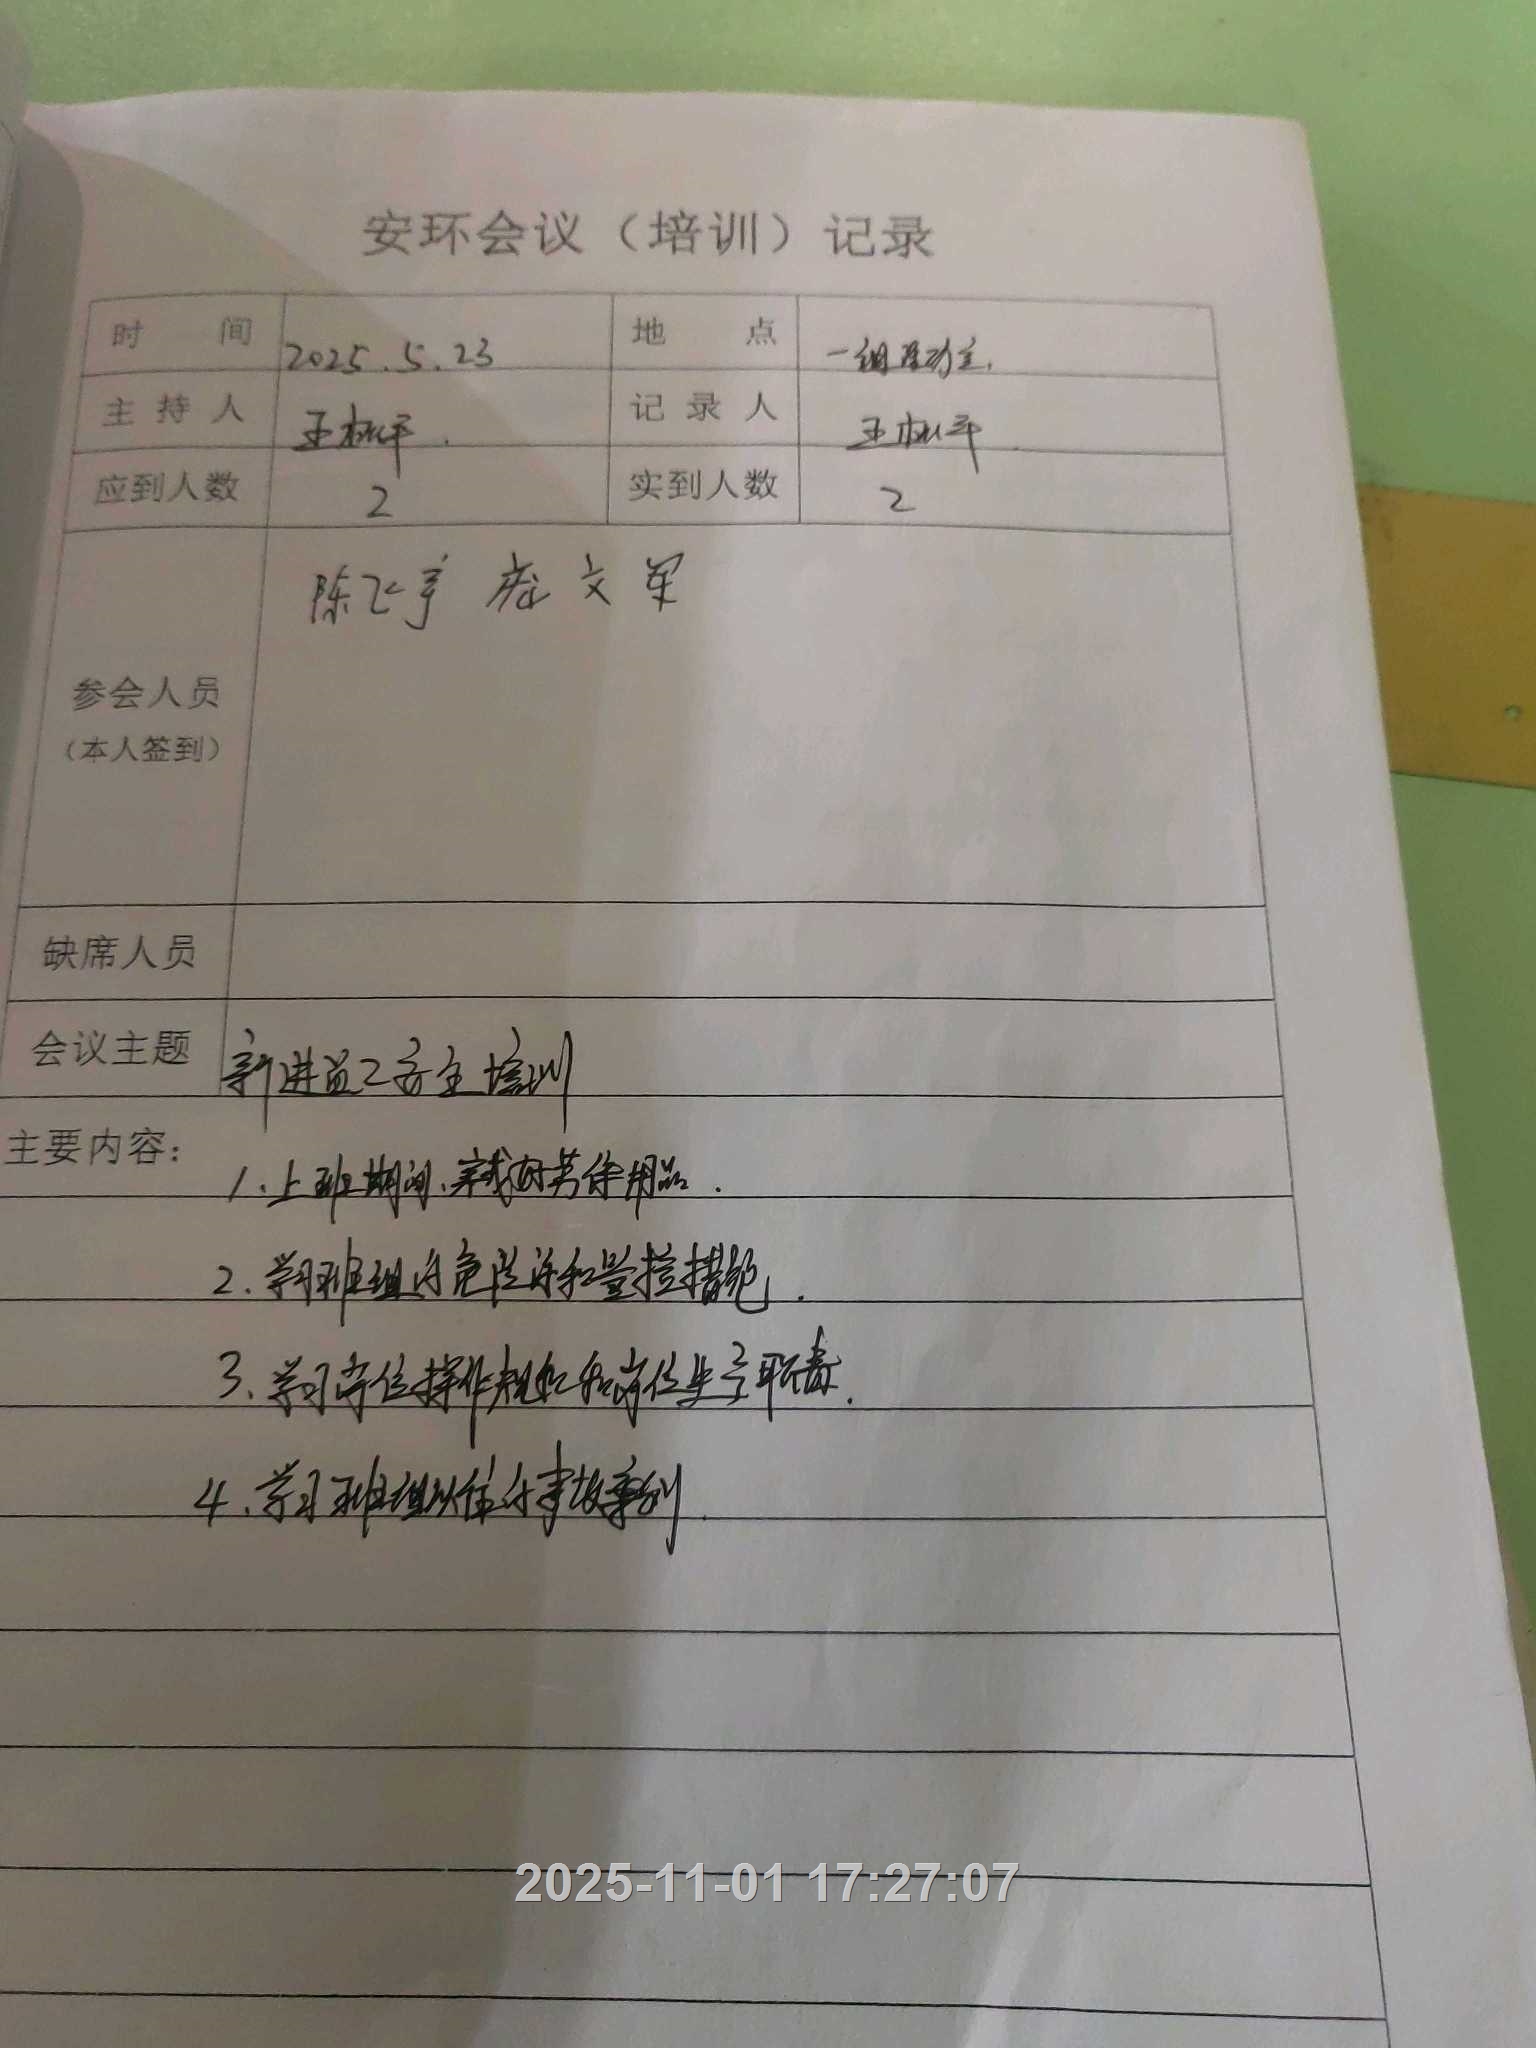 安环会议（培训）记录
时 间 2025.5.23 地 点 一组
主持人 王 平 记录人 王 平
应到人数 2 实到人数 2
陈飞宇 庞文军
参会人员
（本人签到）
缺席人员
会议主题 新进员工安全培训
主要内容：
1、上班期间、穿戴好劳保用品.
2、学习班组内危险源和管控措施.
3、学习岗位操作规程和岗位安全职责.
4、学习班组以往的事故案例.
2025-11-01 17:27:07